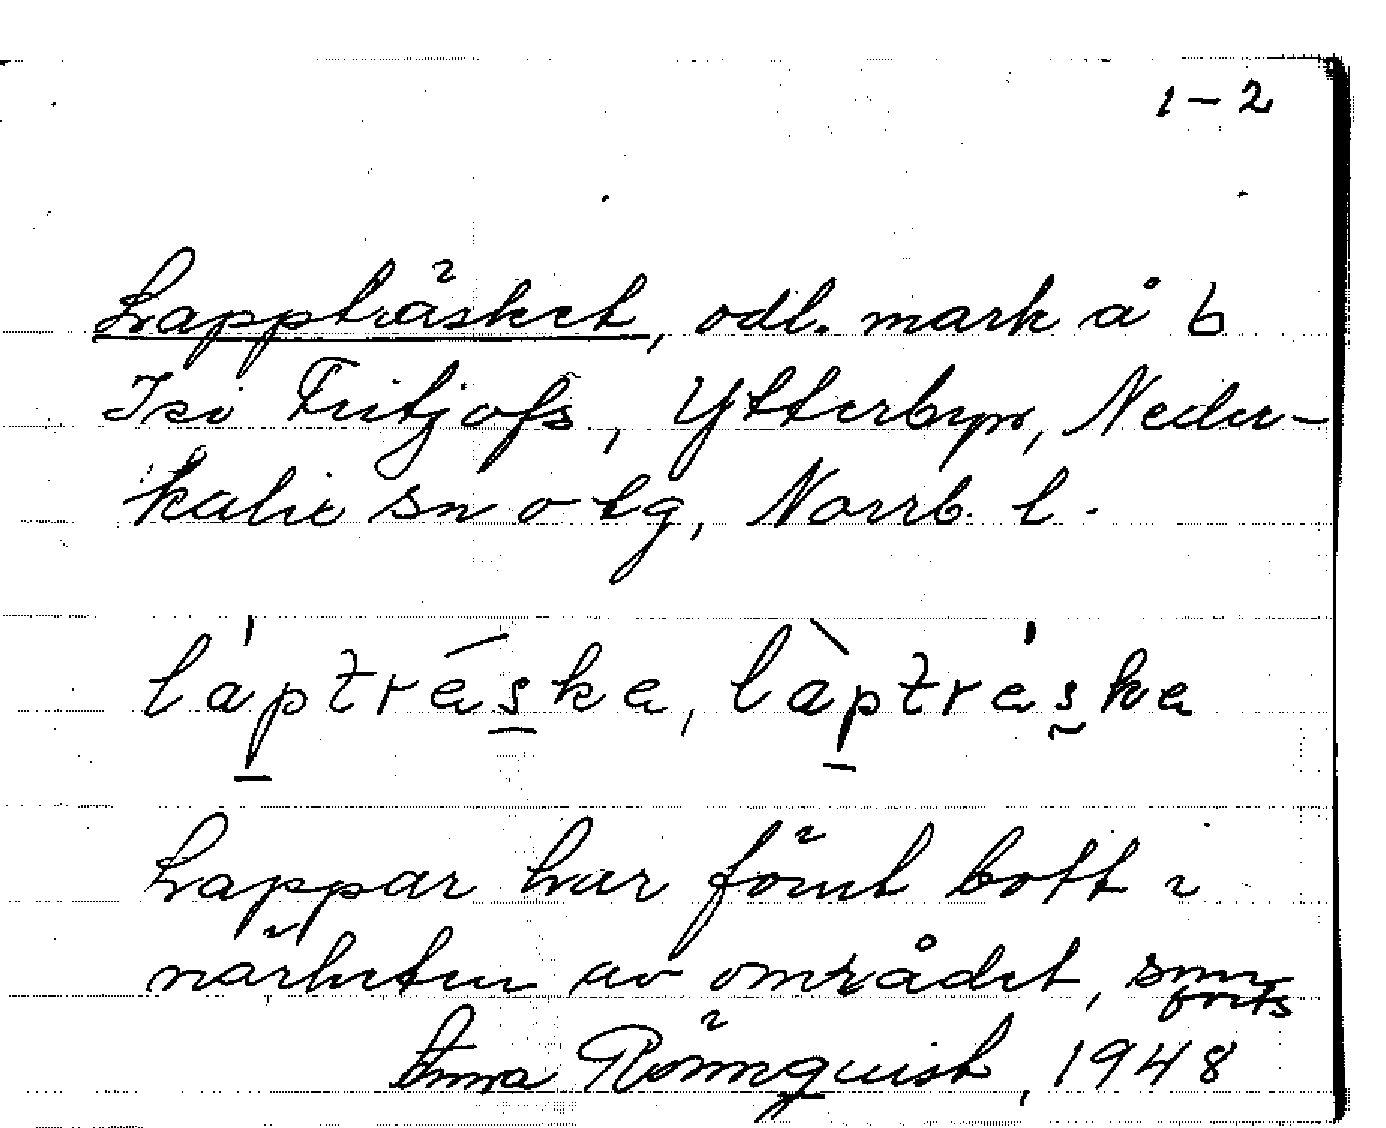 1-2
Lappträsket, odl. mark å b
Isi Fritjofs, Ytterbyn, Neder-
kalix sn o tg, Norrb. l.
láptréska, làptréska
Lappar har förut bott i
närheten av området, som
forts
Anna Rönnquist, 1948